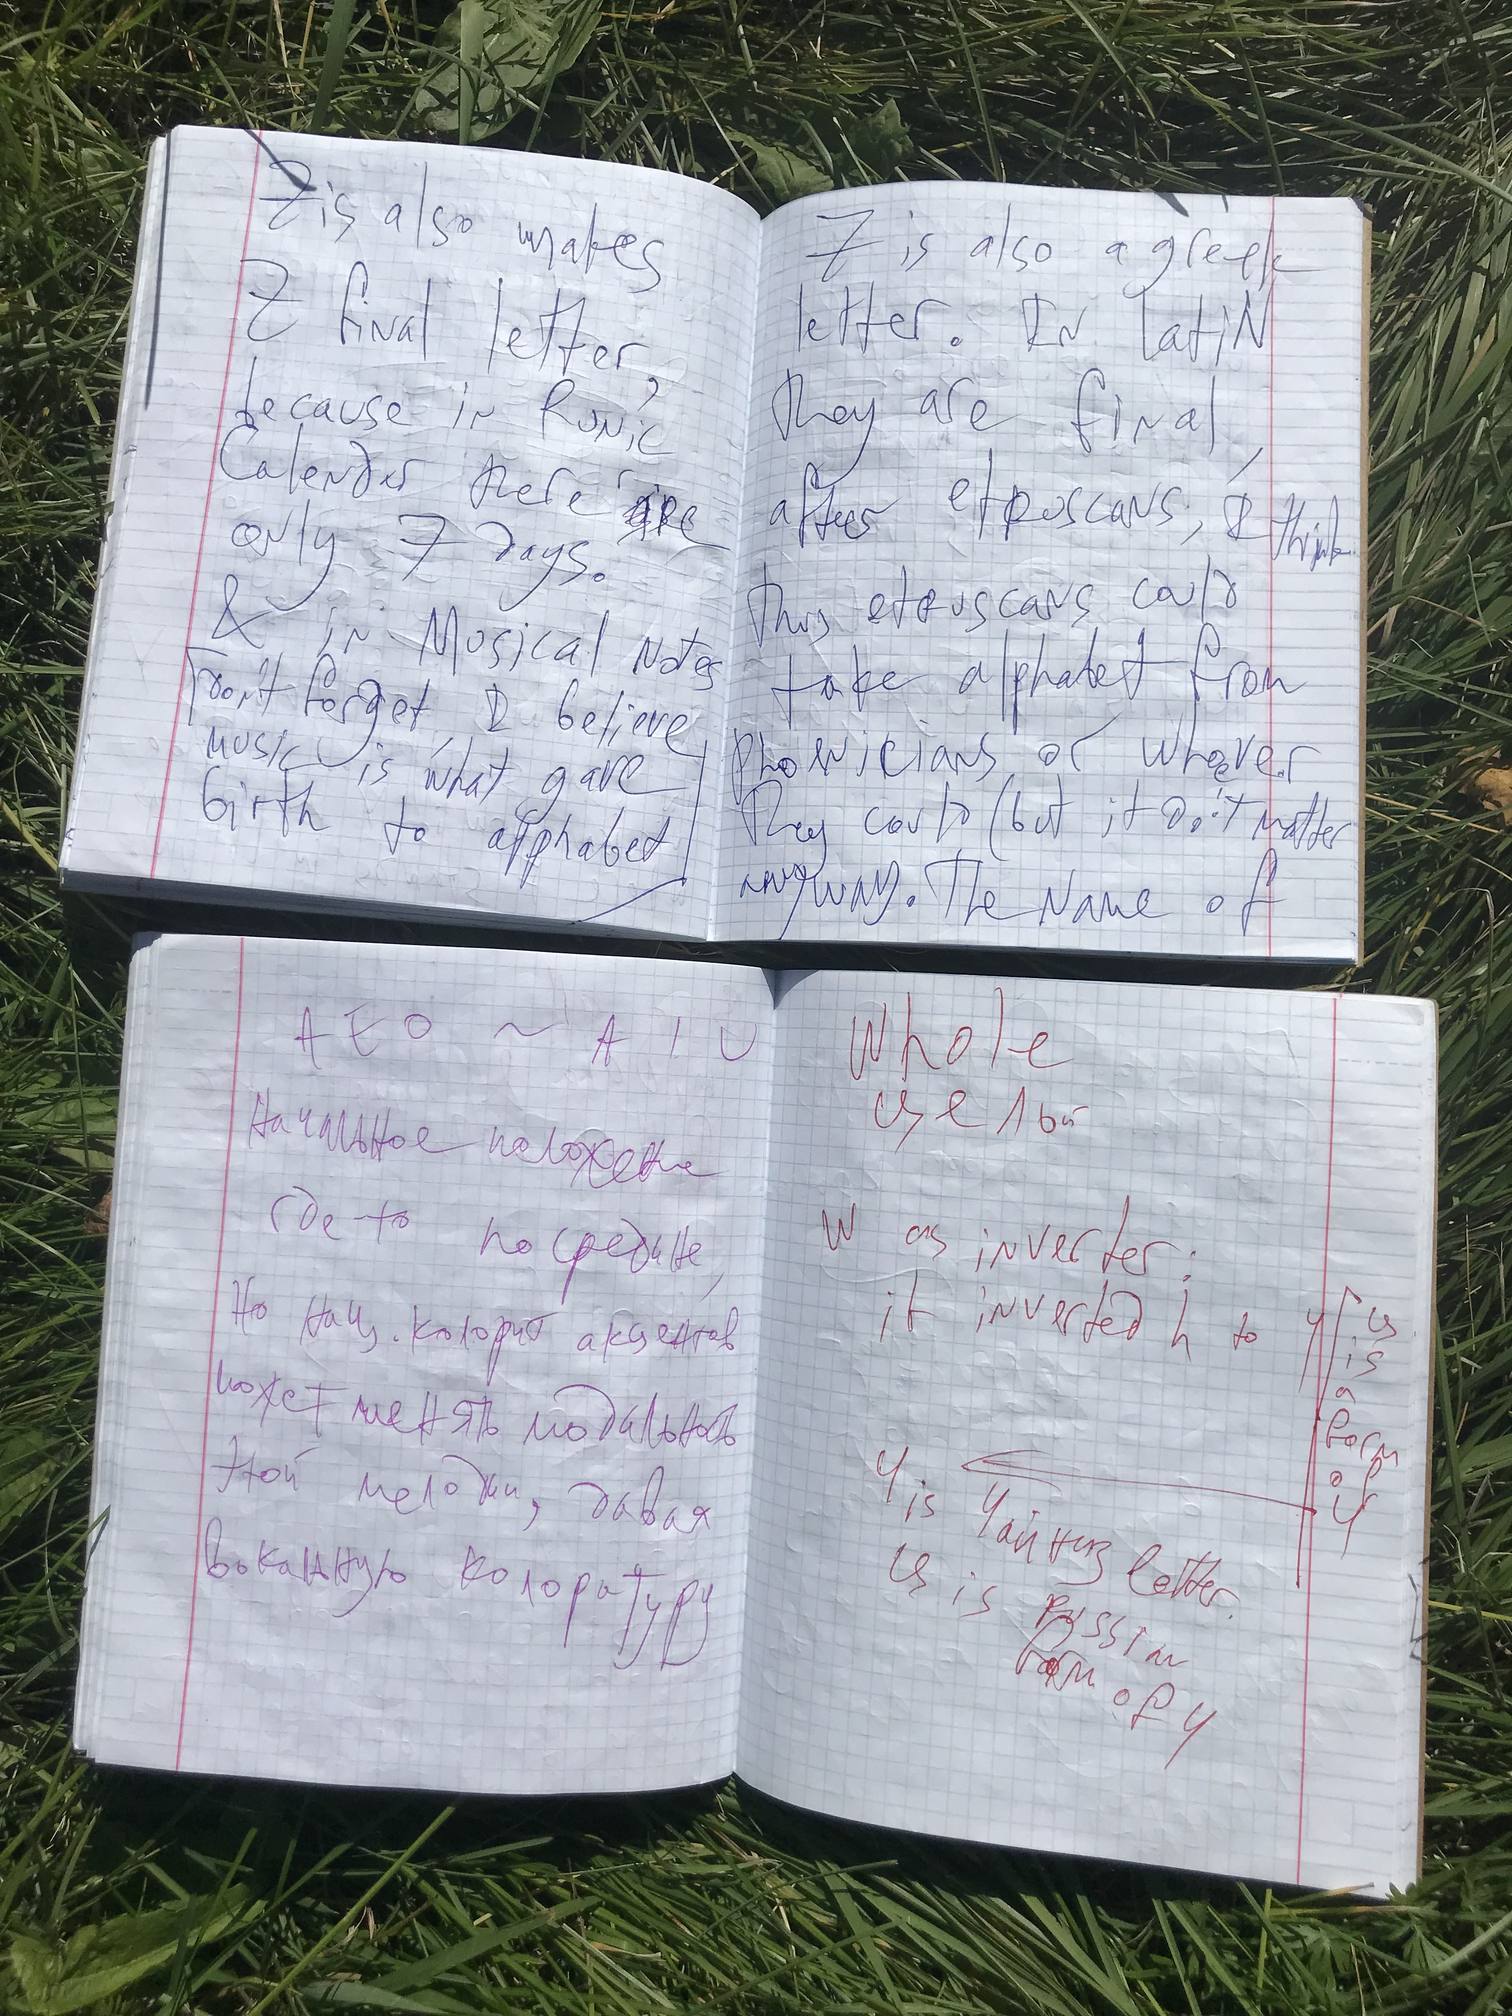 Z is also makes
Z final letter,
because in Runic
Calender there are
only 7 days.
& in Musical Notes
Don't forget, I believe
music is what gave
birth to alphabet
7 is also a greek
letter. In Latin
They are final,
after etruscans, I think
This etruscans could
take alphabet from
phoenicians or whoever
They could (but it don't matter
anyway. The Name of
A E O ~ A I U
Начальное положение
где-то по средине,
Но нац. колорит акцентов
может менять модальность
этой мелодии, давая
вокальную колоратуру
Whole
целый
W as inverter:
it inverted h to ч
ц
is
a
form
of
ч
ч is Чайниз letter.
ц is Russian
form of ч